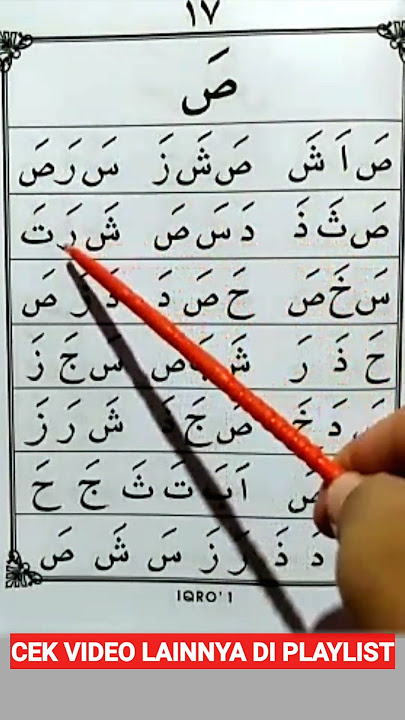 ١٧
صَ
صَ اَ شَ صَ شَ زَ سَ رَ صَ
صَ ثَ ذَ دَ سَ صَ شَ رَ تَ
سَ خَ صَ حَ صَ دَ صَ
حَ ذَ رَ شَ صَ سَ جَ زَ
دَ خَ صَ جَ شَ رَ زَ
صَ اَ بَ تَ ثَ جَ حَ
دَ ذَ رَ زَ سَ شَ صَ
IQRO' 1
CEK VIDEO LAINNYA DI PLAYLIST